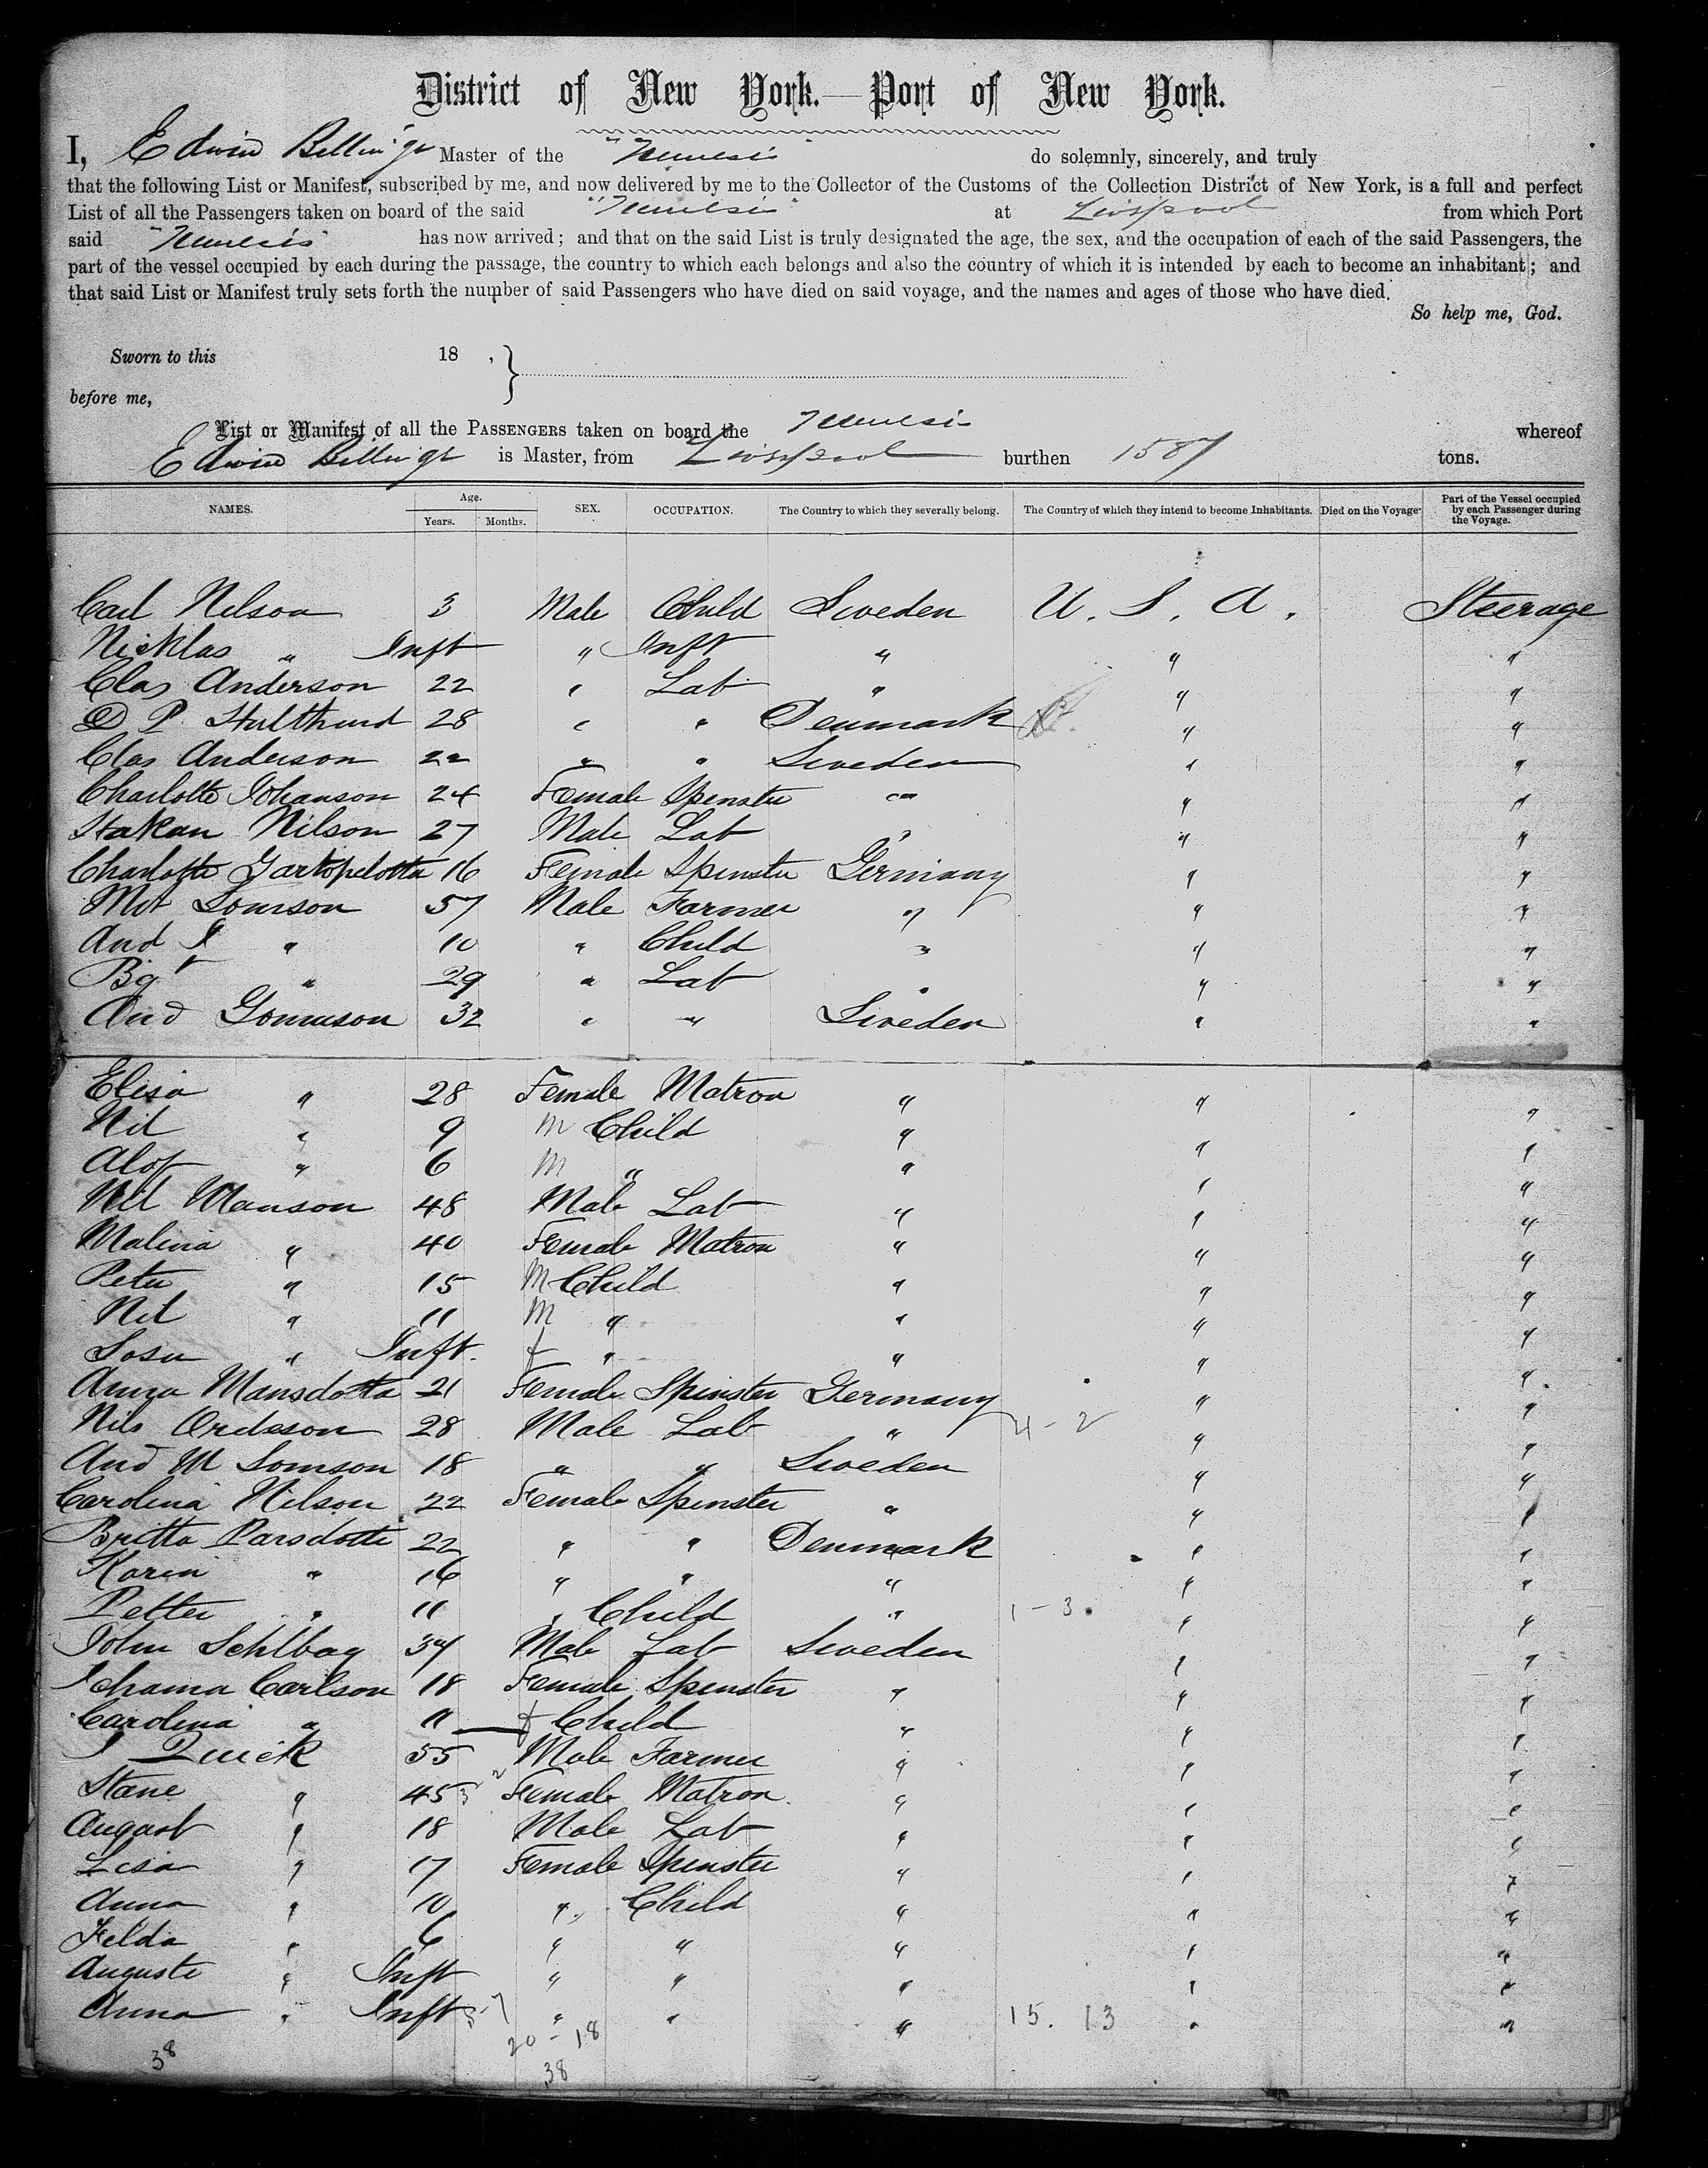 District of New York.—Port of New York.
I, Edwin Billinge Master of the "Nemesis" do solemnly, sincerely, and truly
that the following List or Manifest, subscribed by me, and now delivered by me to the Collector of the Customs of the Collection District of New York, is a full and perfect
List of all the Passengers taken on board of the said "Nemesis" at Liverpool from which Port
said "Nemesis" has now arrived; and that on the said List is truly designated the age, the sex, and the occupation of each of the said Passengers, the
part of the vessel occupied by each during the passage, the country to which each belongs and also the country of which it is intended by each to become an inhabitant; and
that said List or Manifest truly sets forth the number of said Passengers who have died on said voyage, and the names and ages of those who have died.
So help me, God.
Sworn to this 18 ,
before me,
List or Manifest of all the PASSENGERS taken on board the Nemesis whereof
Edwin Billinge is Master, from Liverpool burthen 1587 tons.
NAMES. Age. Years. Months. SEX. OCCUPATION. The Country to which they severally belong. The Country of which they intend to become Inhabitants. Died on the Voyage. Part of the Vessel occupied by each Passenger during the Voyage.
Carl Nelson 3 Male Child Sweden U. S. A. Steerage
Nicklas " Inft " Inft " " "
Clas Anderson 22 " Lab " " "
P. 28 " " Denmark " "
Clas Anderson 22 " " Sweden " "
Charlotte Johanson 24 Female Spinster " " "
Stakan Nilson 27 Male Lab " " "
Charlotte 16 Female Spinster Germany " "
Sonnson 57 Male Farmer " " "
And " 10 " Child " " "
" 29 " Lab " " "
And Gonnuson 32 " " Sweden " "
Elisa " 28 Female Matron " " "
Nil " 9 M Child " " "
Alof " 6 M " " " "
Nil Manson 48 Male Lab " " "
Malina " 40 Female Matron " " "
Peter " 15 M Child " " "
Nil " 11 M " " " "
" Inft. f " " " "
Anna Mansdotta 21 Female Spinster Germany " "
Nils 28 Male Lab " 4-2 " "
And M Sonnson 18 " " Sweden " "
Carolina Nilson 22 Female Spinster " " "
Britta Parsdotte 22 " " Denmark " "
Karin " 16 " " " " "
Petter " 11 " Child " 1-3 " "
John 34 Male Lab Sweden " "
Johanna Carlson 18 Female Spinster " " "
Carolina " 11 f Child " " "
J Quick 55 Male Farmer " " "
Stane " 45 Female Matron " " "
August " 18 Male Lab " " "
Lisa " 17 Female Spinster " " "
Anna " 10 " Child " " "
Felda " 6 " " " " "
Auguste " Inft " " " " "
Anna " Inft " " " 15. 13 " "
38 20-18
38